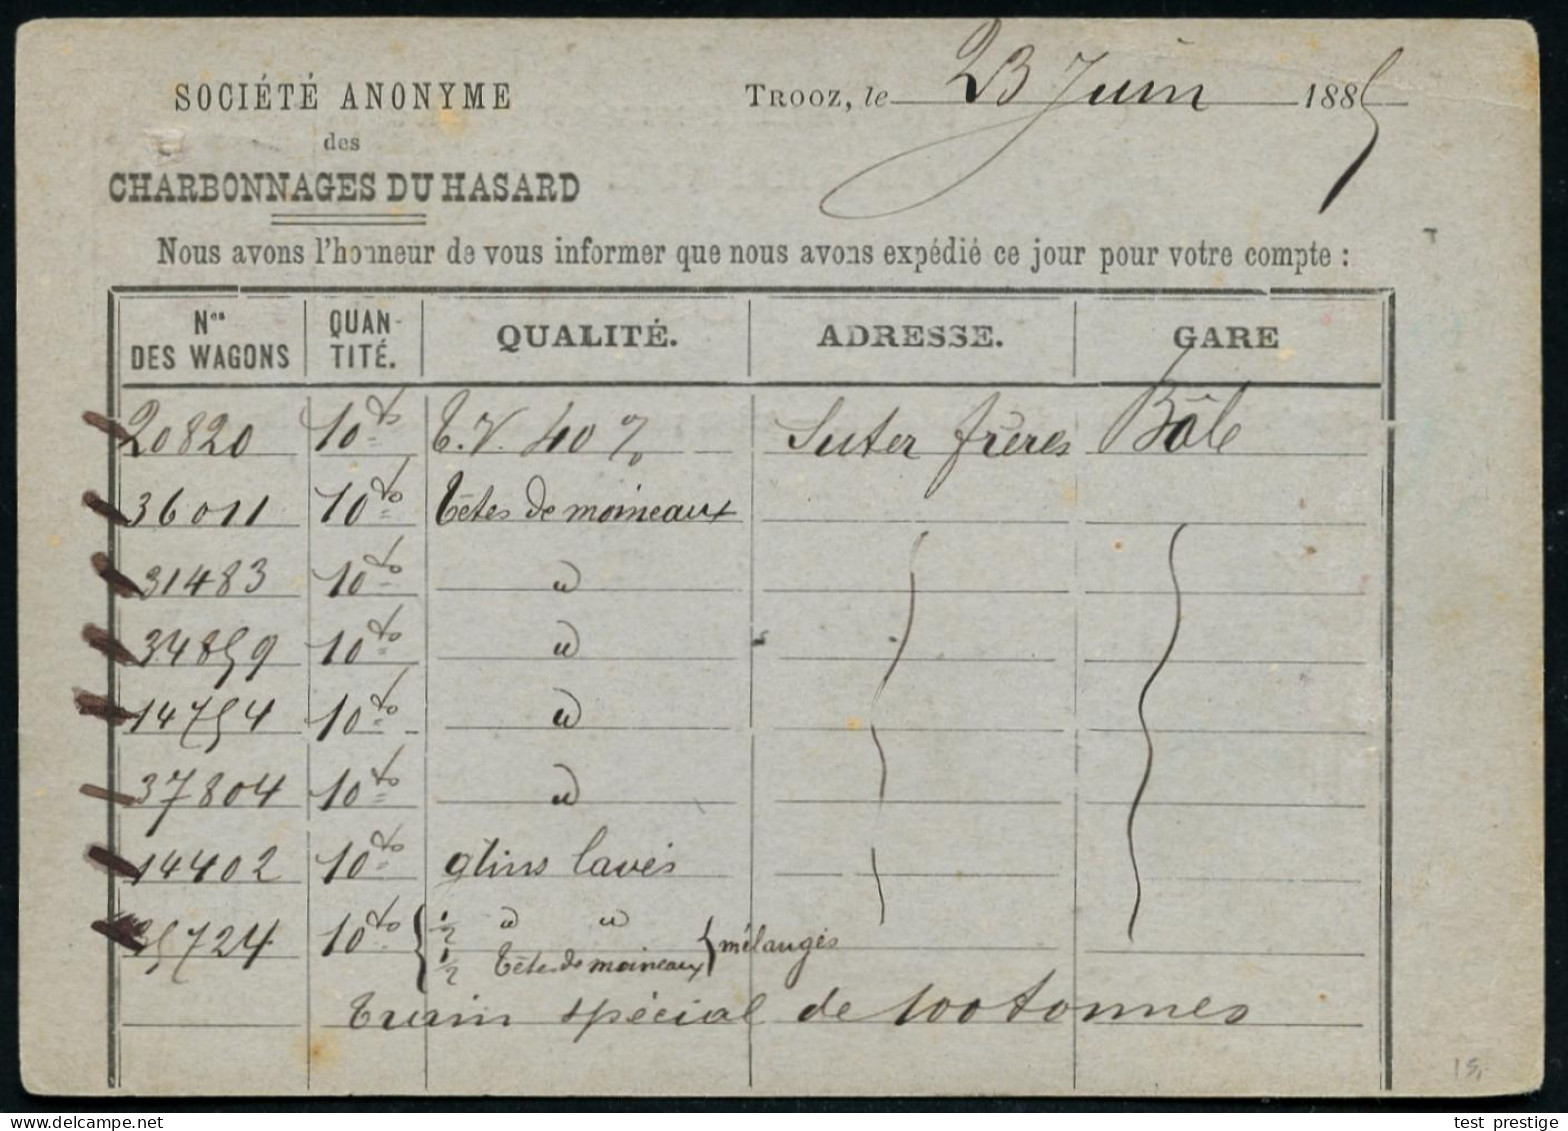 SOCIÉTÉ ANONYME
des
CHARBONNAGES DU HASARD
TROOZ, le 23 Juin 1885
Nous avons l'honneur de vous informer que nous avons expédié ce jour pour votre compte :
Nos DES WAGONS QUAN-TITÉ. QUALITÉ. ADRESSE. GARE
20820 10 to T.V. 40 % Suter frères Bâle
36011 10 to Têtes de moineaux
31483 10 to "
34859 10 to "
14754 10 to "
37804 10 to "
14402 10 to lavés
35724 10 to { 1/2 " "
1/2 Têtes de moineaux } mélangés
Train spécial de 100 tonnes
15
test prestige